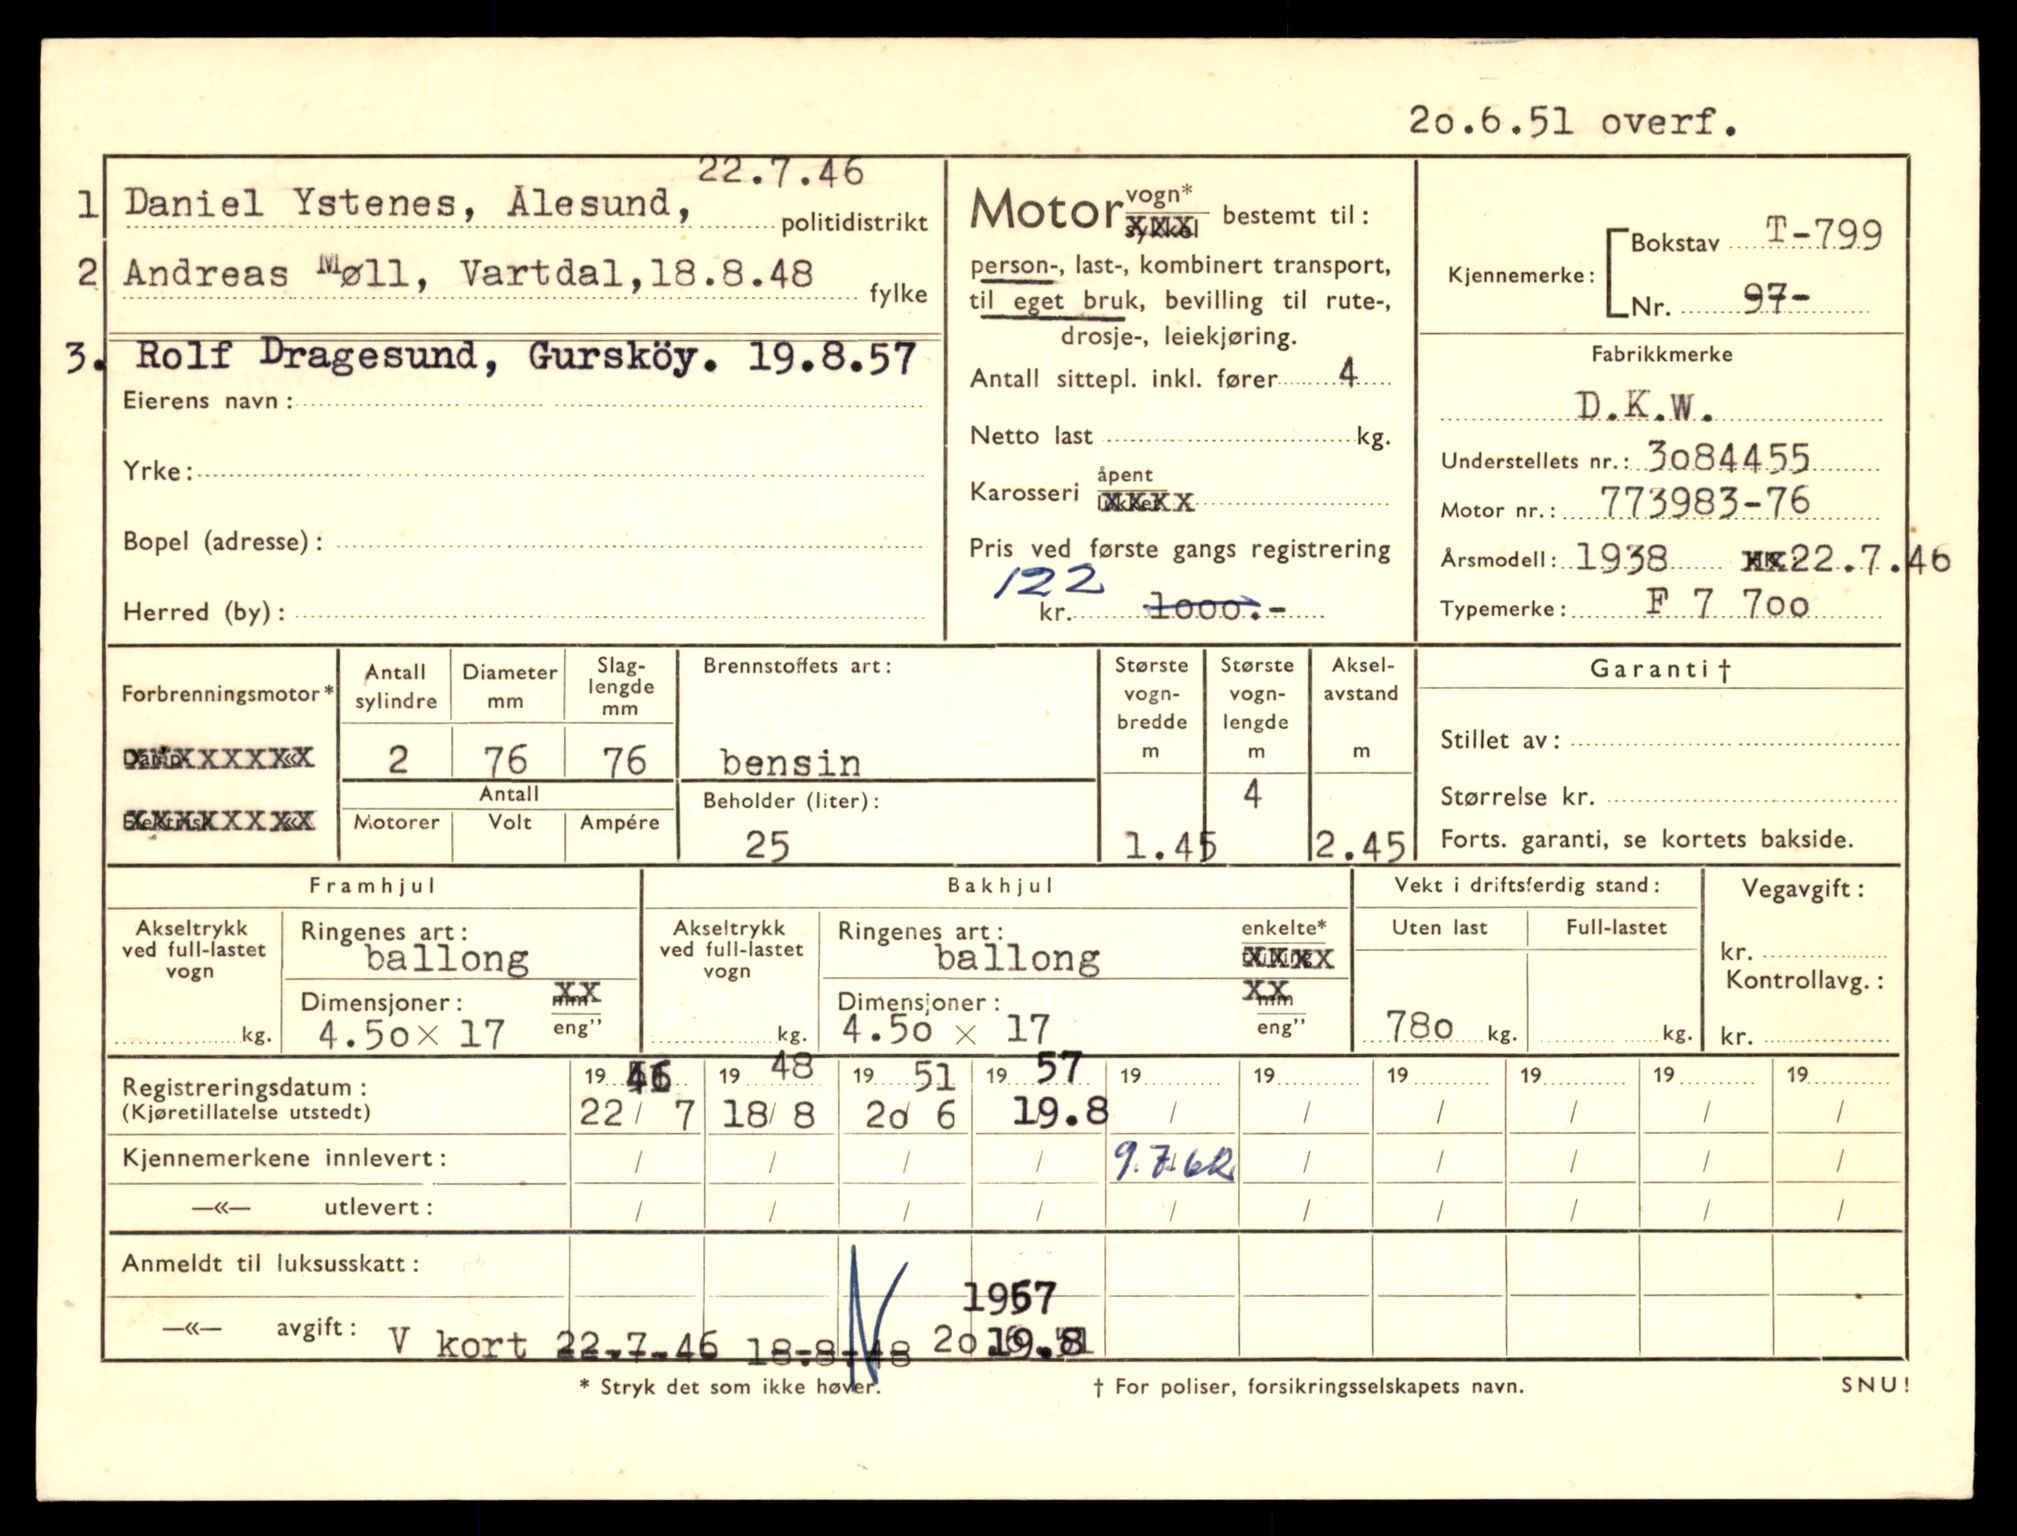 2o.6.51 overf.
22.7.46
1 Daniel Ystenes, Alesund, politidistrikt
2 Andreas Møll, Vartdal,18.8.48 fylke
3. Rolf Dragesund, Gursköy. 19.8.57
Eierens navn:
Yrke:
Bopel (adresse):
Herred (by):
Motor vogn* bestemt til:
person-, last-, kombinert transport,
til eget bruk, bevilling til rute-,
drosje-, leiekjøring.
Antall sittepl. inkl. fører 4
Netto last kg.
Karosseri åpent
Pris ved første gangs registrering
122
kr. 1ooo.-
Kjennemerke: Bokstav T-799
Nr. 97-
Fabrikkmerke
D.K.W.
Understellets nr.: 3o84455
Motor nr.: 773983-76
Årsmodell: 1938 22.7.46
Typemerke: F 7 7oo
Forbrenningsmotor*
Antall sylindre
Diameter mm
Slag-lengde mm
2 76 76
Antall
Motorer Volt Ampére
Brennstoffets art:
bensin
Beholder (liter):
25
Største vogn-bredde m
1.45
Største vogn-lengde m
4
Aksel-avstand m
2.45
Garanti †
Stillet av:
Størrelse kr.
Forts. garanti, se kortets bakside.
Framhjul
Akseltrykk ved full-lastet vogn
kg.
Ringenes art:
ballong
Dimensjoner: eng”
4.5o x 17
Bakhjul
Akseltrykk ved full-lastet vogn
kg.
Ringenes art: enkelte*
ballong
Dimensjoner: eng”
4.5o x 17
Vekt i driftsferdig stand:
Uten last Full-lastet
78o kg. kg.
Vegavgift:
kr.
Kontrollavg.:
kr.
Registreringsdatum: 19 46 19 48 19 51 19 57 19 19 19 19 19 19
(Kjøretillatelse utstedt) 22/ 7 18/ 8 2o/ 6 19.8 / / / / / /
Kjennemerkene innlevert: / / / / 9.7.62 / / / / /
—«— utlevert: / / / / / / / / / /
Anmeldt til luksusskatt:
1957
—«— avgift: V kort 22.7.46 18.8.48 2o.6.51 19.8
* Stryk det som ikke høver.
† For poliser, forsikringsselskapets navn.
SNU!